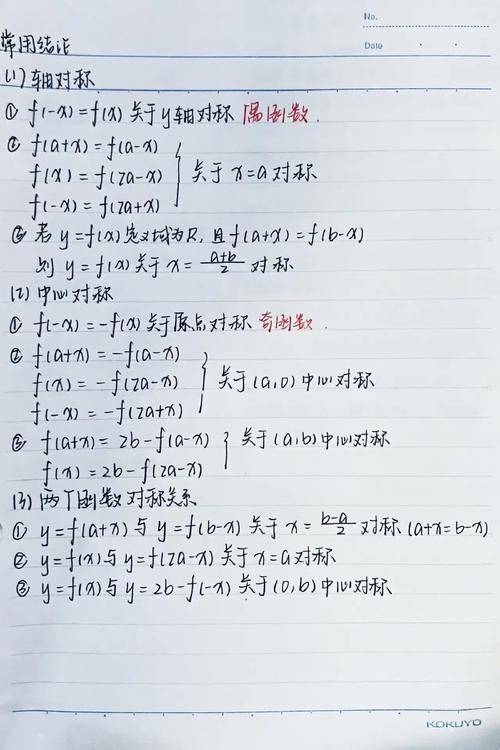 No.
Date
常用结论
(1) 轴对称
① f(-x)=f(x) 关于y轴对称 偶函数.
② f(a+x)=f(a-x)
f(x)=f(2a-x) } 关于 x=a 对称
f(-x)=f(2a+x)
③ 若 y=f(x) 定义域为R, 且 f(a+x)=f(b-x)
则 y=f(x) 关于 x=\frac{a+b}{2} 对称
(2) 中心对称
① f(-x)=-f(x) 关于原点对称 奇函数.
② f(a+x)=-f(a-x)
f(x)=-f(2a-x) } 关于(a,0)中心对称
f(-x)=-f(2a+x)
③ f(a+x)=2b-f(a-x) } 关于(a,b)中心对称
f(x)=2b-f(2a-x)
(3) 两个函数对称关系
① y=f(a+x) 与 y=f(b-x) 关于 x=\frac{b-a}{2} 对称 (a+x=b-x)
② y=f(x)与 y=f(2a-x) 关于 x=a对称
③ y=f(x)与 y=2b-f(-x) 关于(0,b)中心对称
KOKUYO